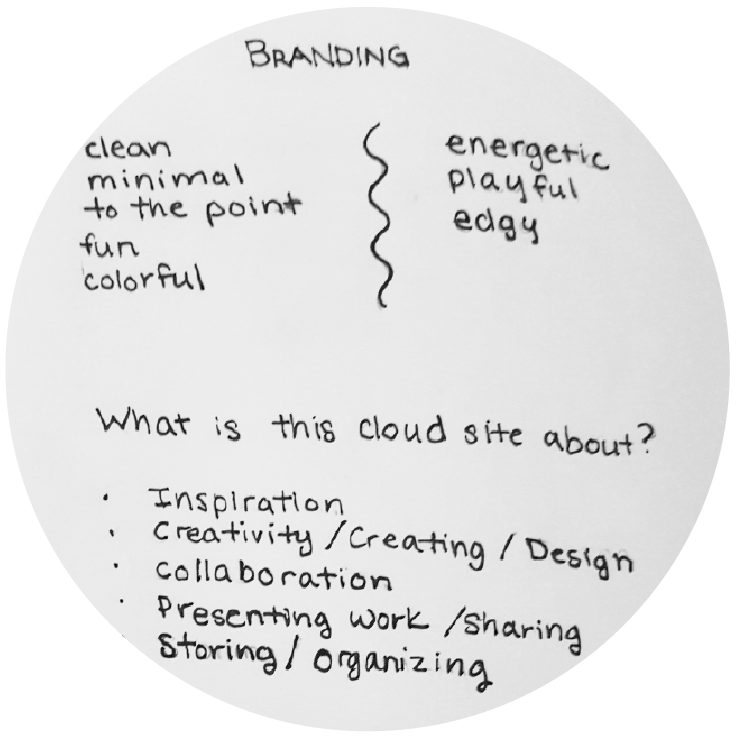 BRANDING
clean
minimal
to the point
fun
colorful
energetic
playful
edgy
What is this cloud site about?
· Inspiration
· Creativity / Creating / Design
· collaboration
· Presenting work / Sharing
· Storing / organizing